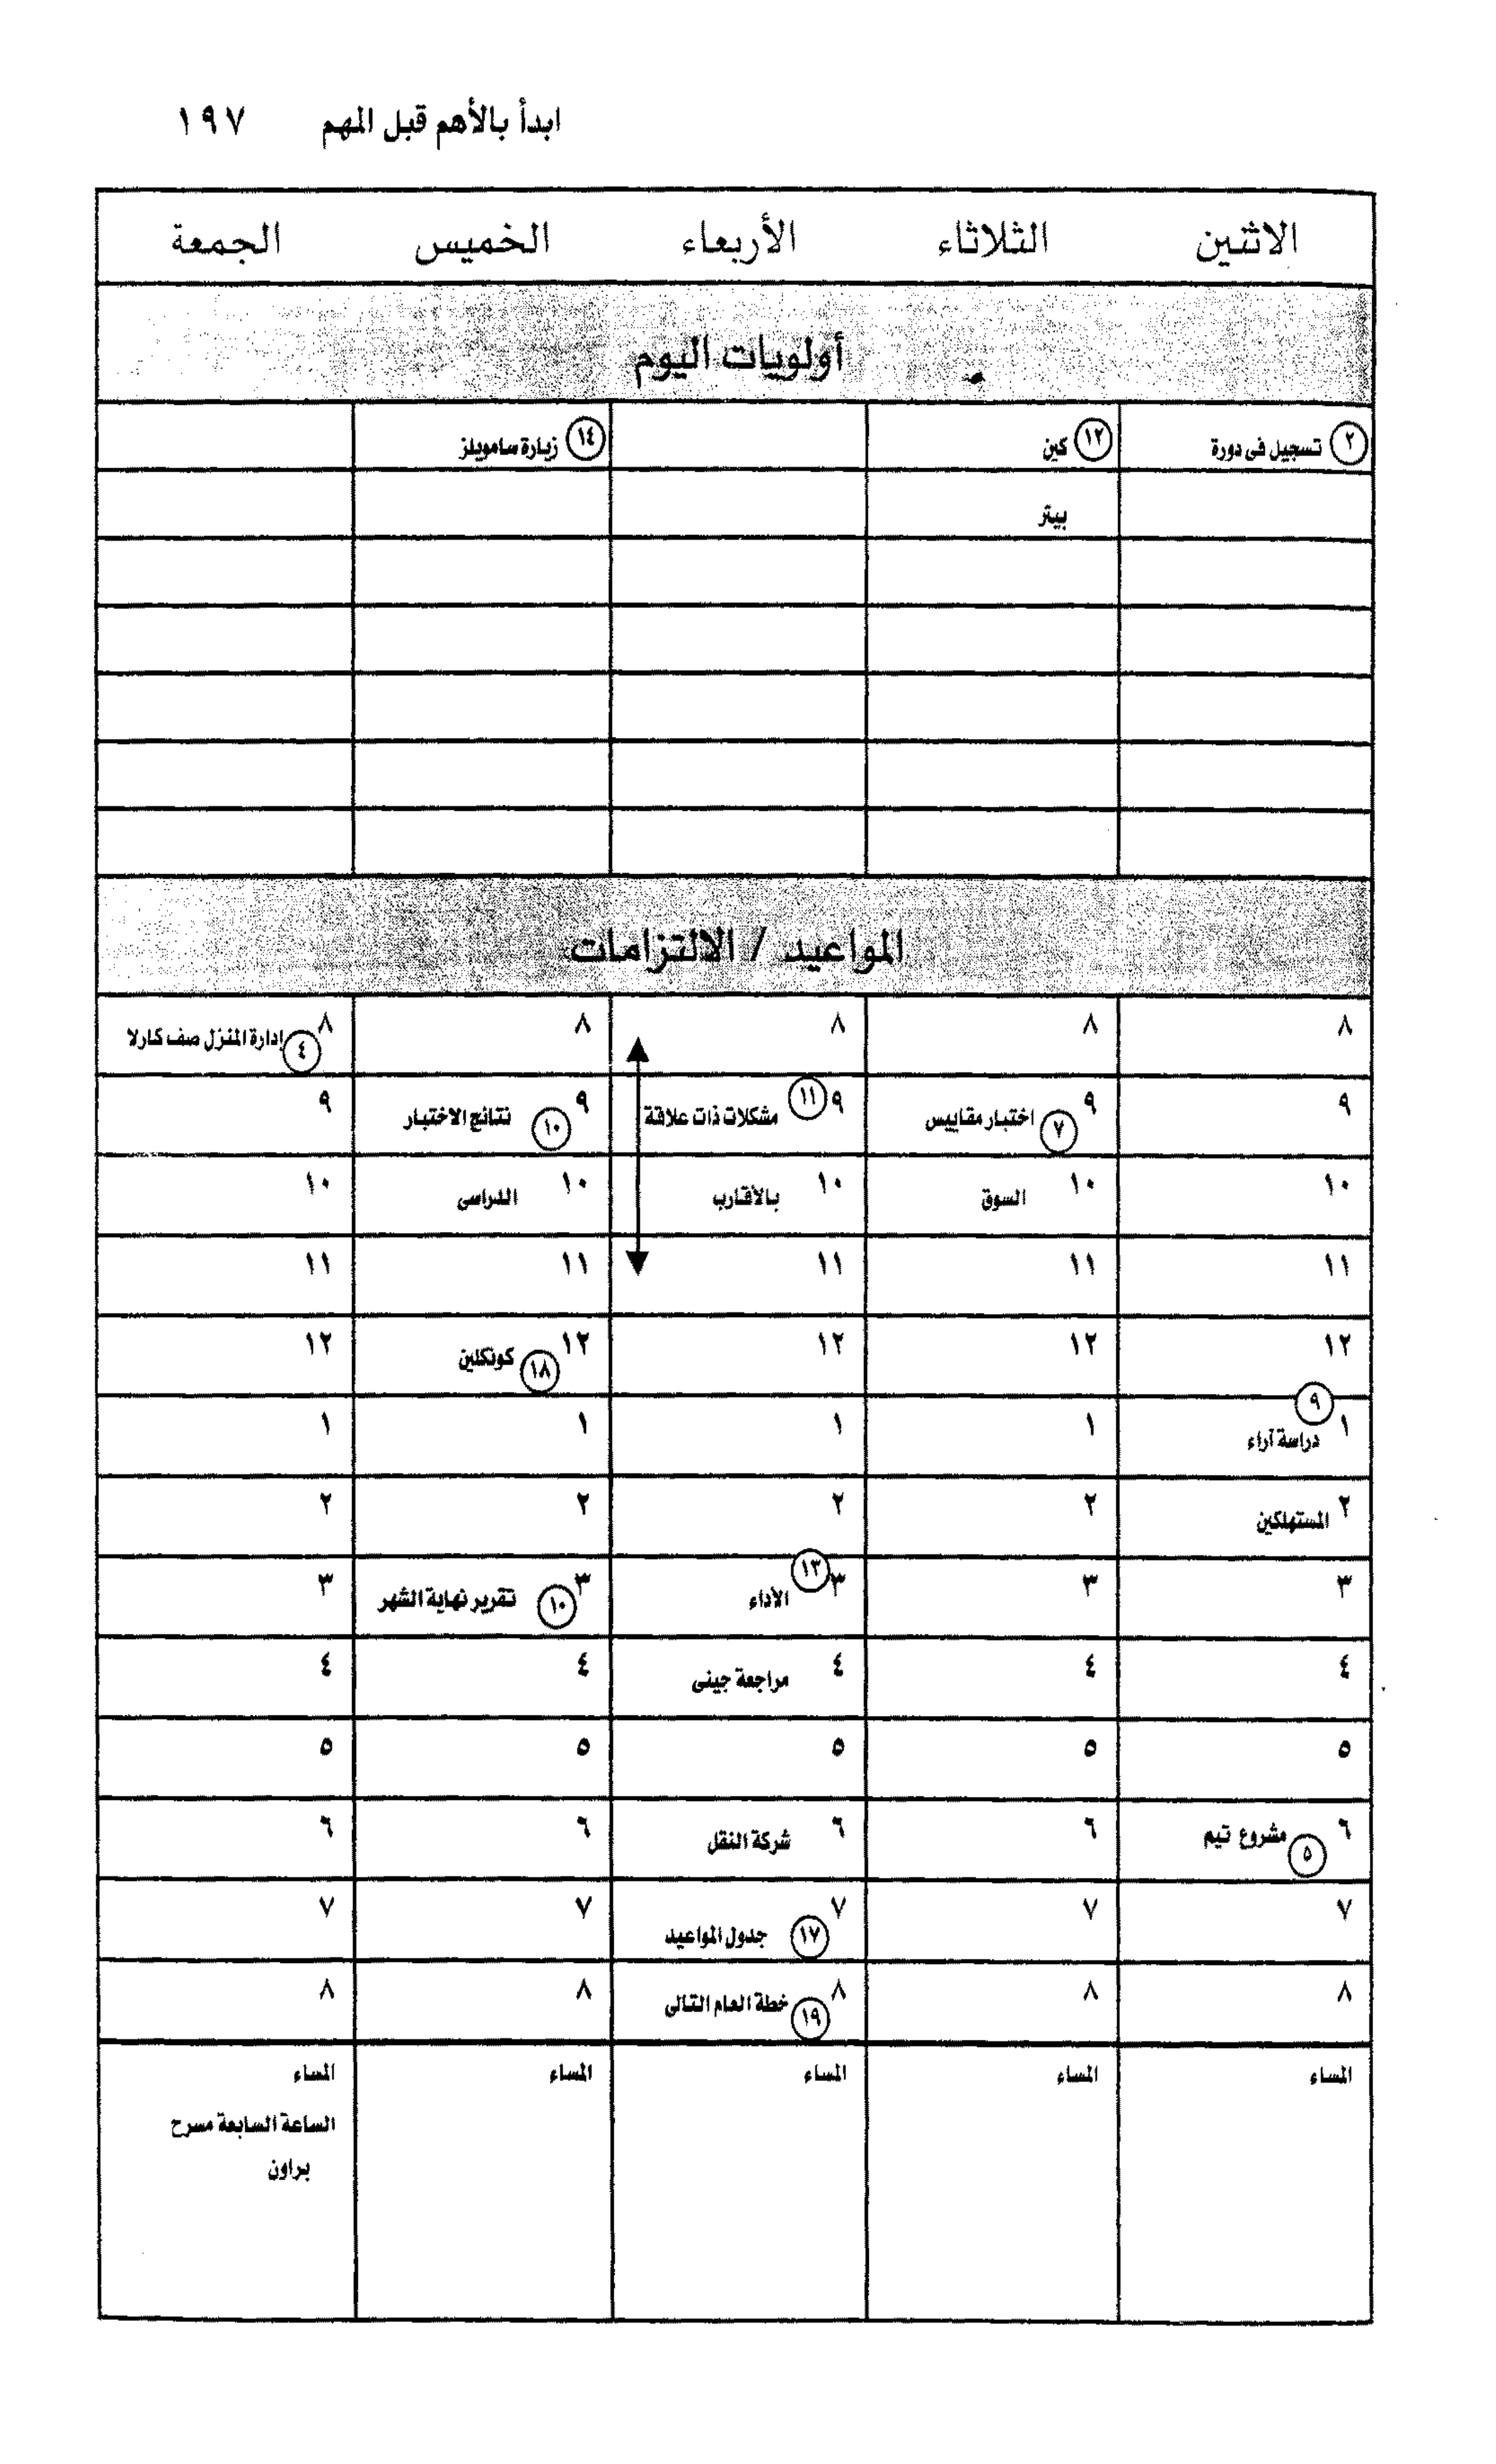 ابدأ بالأهم قبل المهم ١٩٧
الاثنين الثلاثاء الأربعاء الخميس الجمعة
أولويات اليوم
٢ تسجيل فى دورة ١٢ كين ١٤ زيارة سامويلز
بيتر
المواعيد / الالتزامات
٨ ٨ ٨ ٨ ٨ ٤ إدارة المنزل صف كارلا
٩ ٩ ٧ اختبار مقاييس ٩ ١١ مشكلات ذات علاقة ٩ ١٠ نتائج الاختبار ٩
١٠ ١٠ السوق ١٠ بالأقارب ١٠ الدراسى ١٠
١١ ١١ ١١ ١١ ١١
١٢ ١٢ ١٢ ١٢ ١٨ كونكلين ١٢
١ ٩ دراسة آراء ١ ١ ١ ١
٢ المستهلكين ٢ ٢ ٢ ٢
٣ ٣ ٣ ١٣ الأداء ٣ ١٠ تقرير نهاية الشهر ٣
٤ ٤ ٤ مراجعة جينى ٤ ٤
٥ ٥ ٥ ٥ ٥
٦ ٥ مشروع تيم ٦ ٦ شركة النقل ٦ ٦
٧ ٧ ٧ ١٧ جدول المواعيد ٧ ٧
٨ ٨ ٨ ١٩ خطة العام التالى ٨ ٨
المساء المساء المساء المساء المساء
الساعة السابعة مسرح
براون